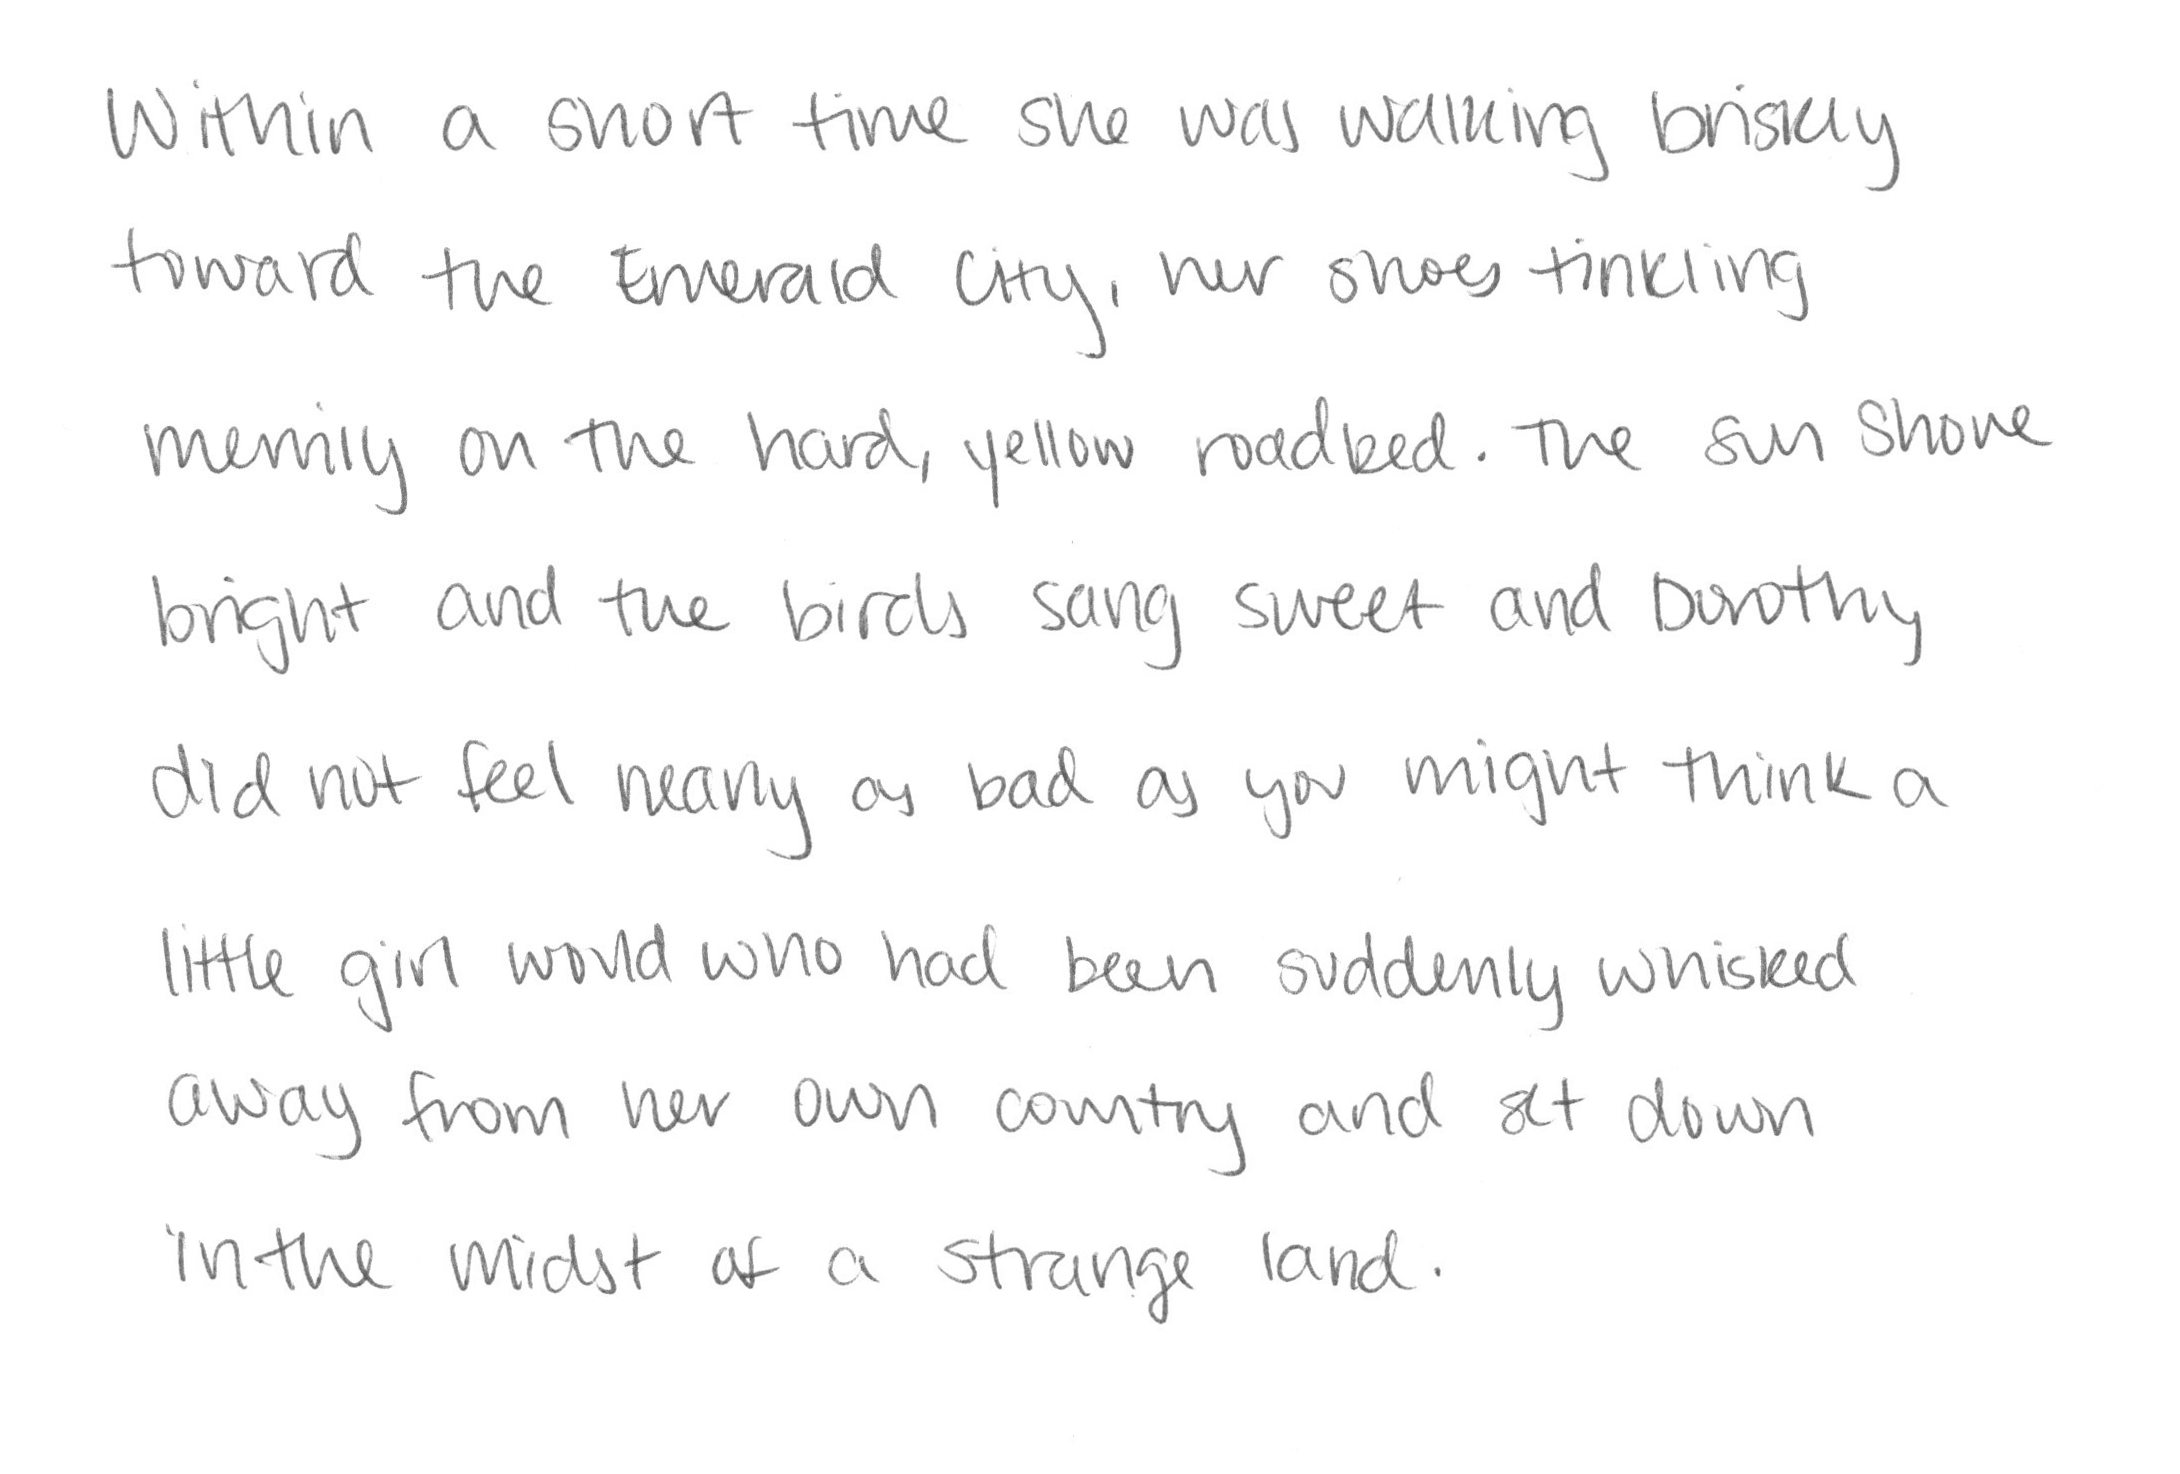 Within a short time she was walking briskly
toward the Emerald City, her shoes tinkling
merrily on the hard, yellow roadbed. The sun shone
bright and the birds sang sweet and Dorothy
did not feel nearly as bad as you might think a
little girl would who had been suddenly whisked
away from her own country and set down
in the midst of a strange land.